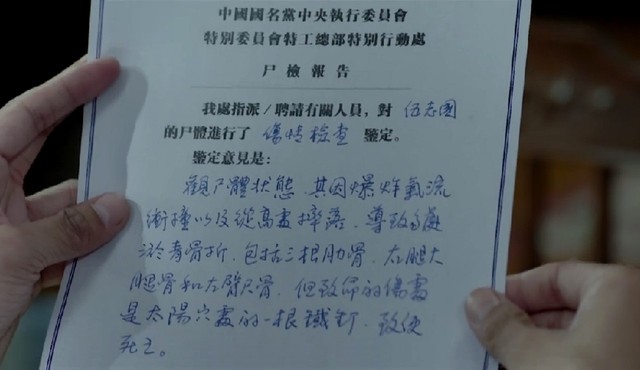 中國國名黨中央執行委員會
特別委員會特工總部特別行動處
尸檢報告
我處指派/聘請有關人員，對 伍志國
的尸體進行了 傷情檢查 鑒定。
鑒定意見是：
觀尸體狀態，其因爆炸氣流
衝撞以及從高處摔落，導致多處
淤青骨折，包括三根肋骨、左腿大
腿骨和左臂尺骨，但致命的傷處
是太陽穴處的一根鐵釘，致使
死亡。